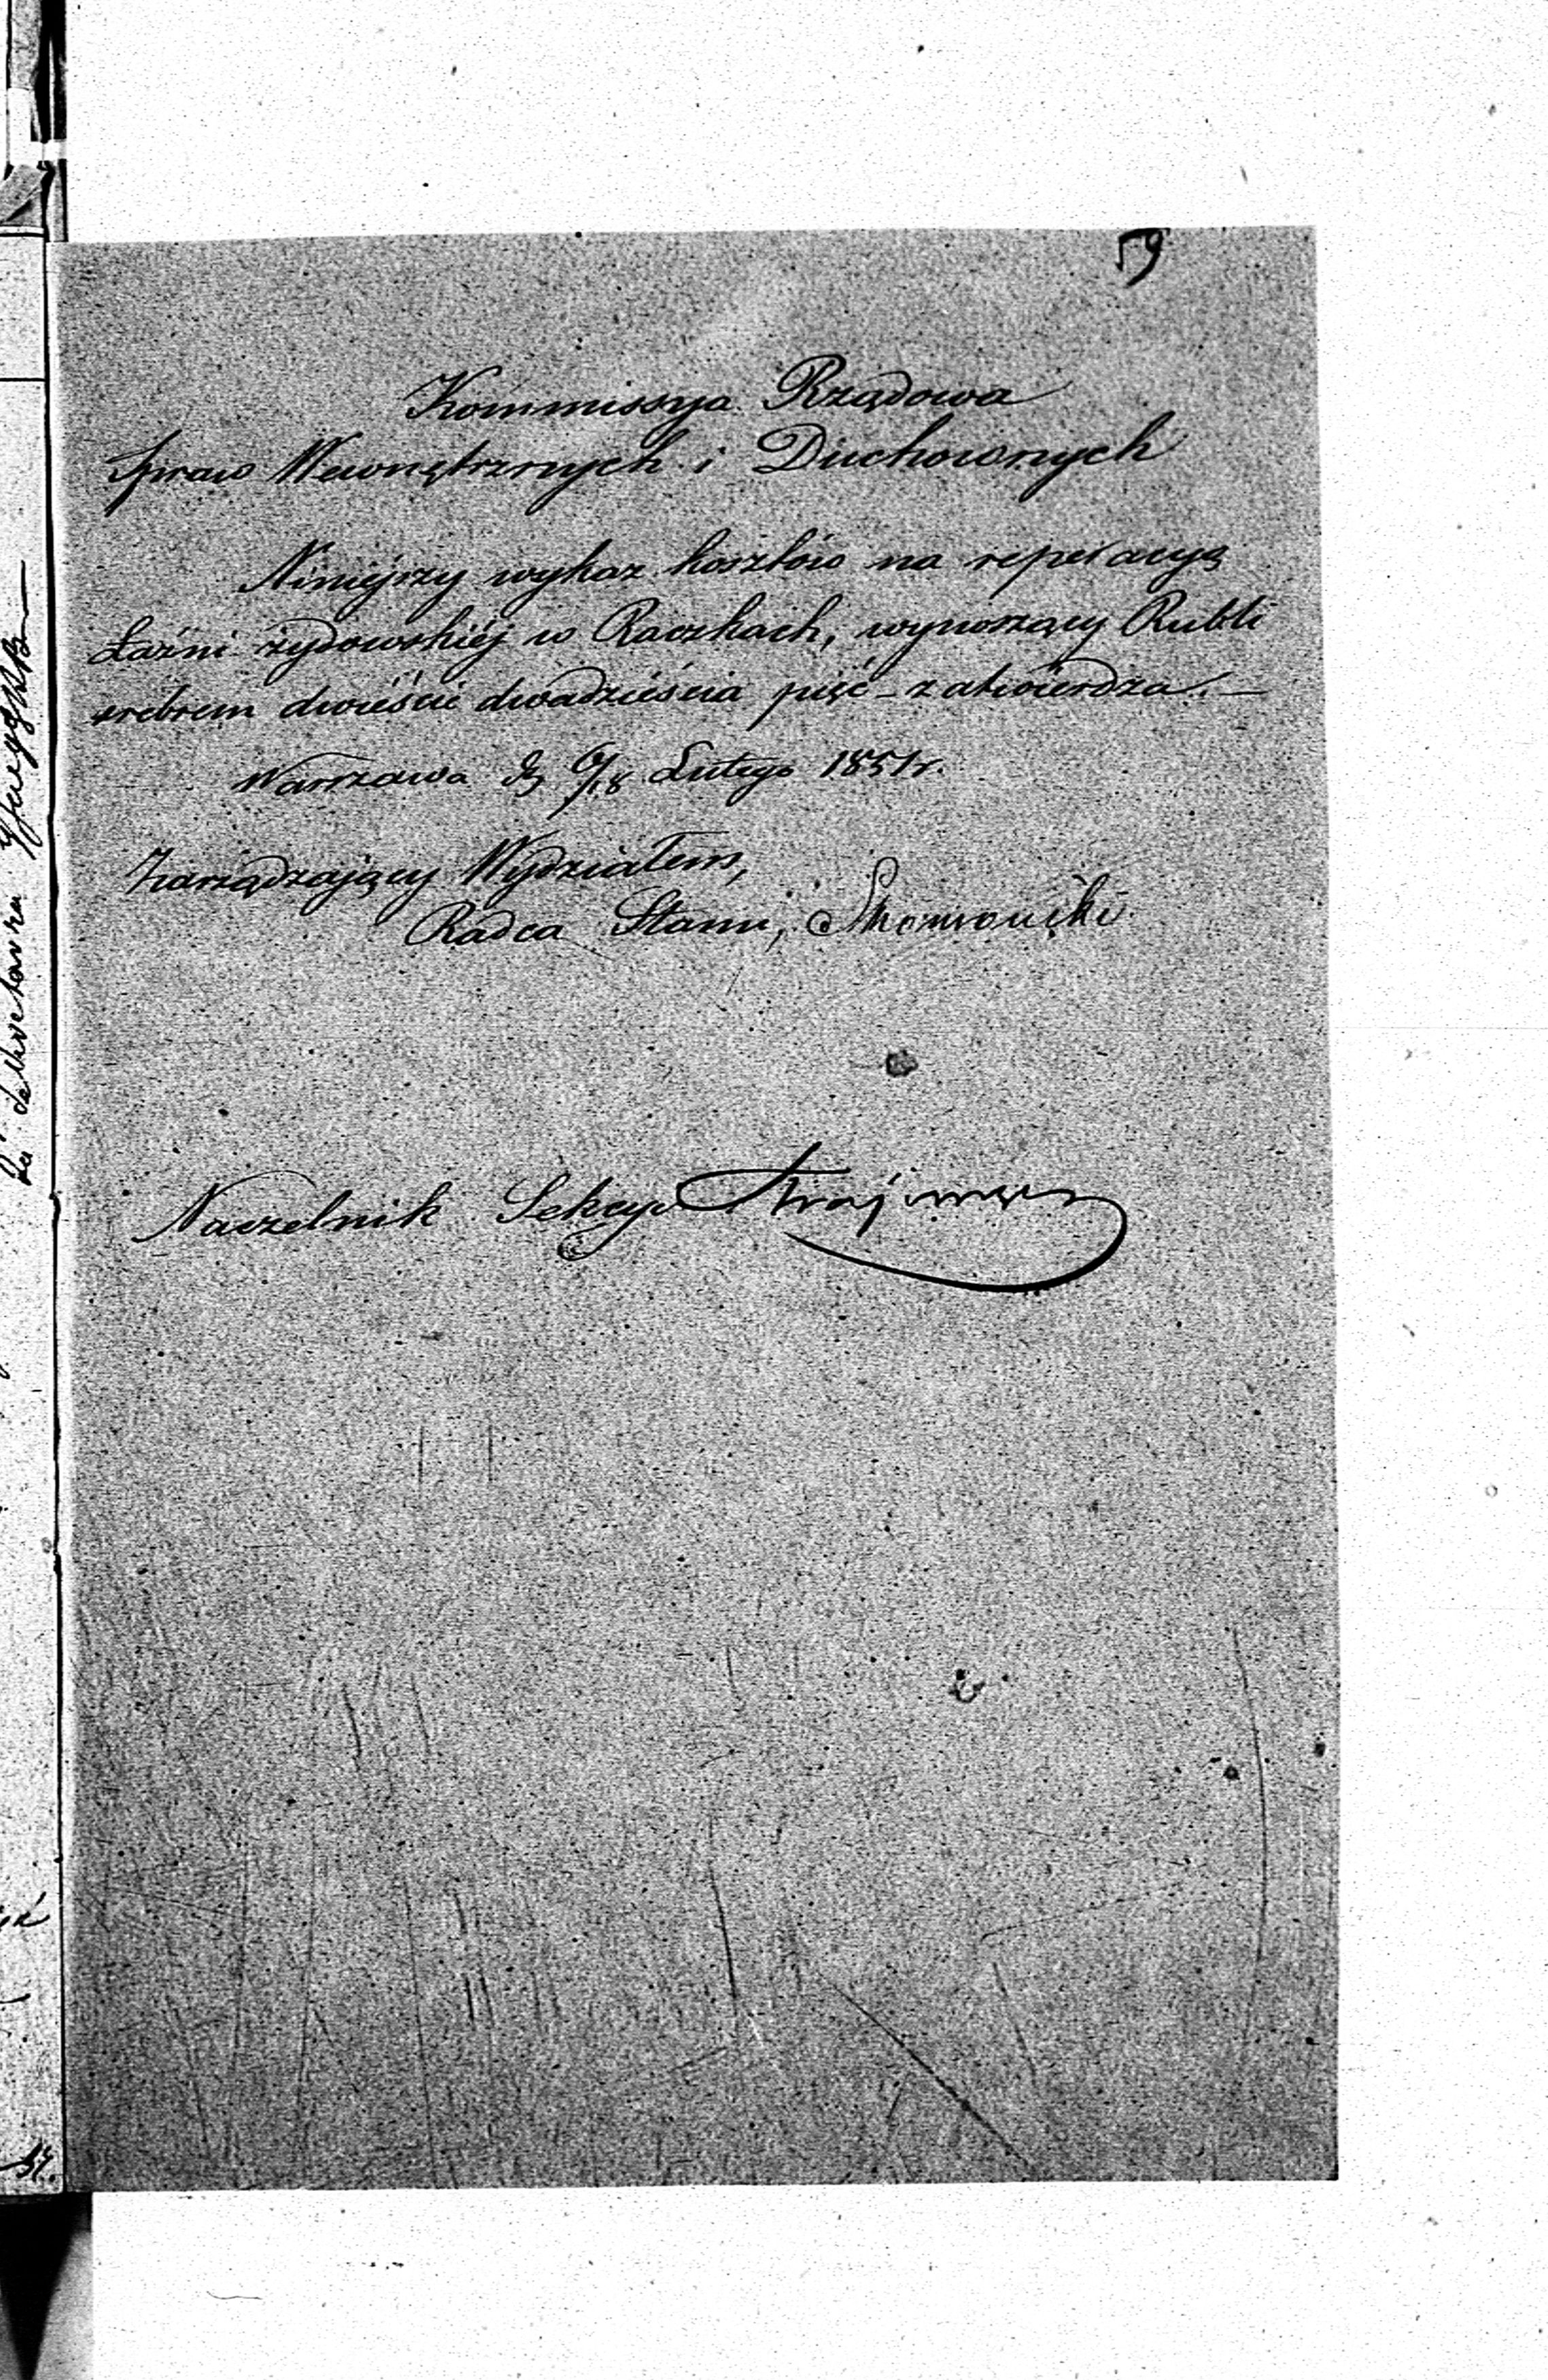 59
Kommissya Rządowa
Spraw Wewnętrznych i Duchownych
Niniejszy wykaz kosztów na reperacyą
Łaźni żydowskiéj w Raczkach, wynoszący Rubli
srebrem dwieście dwadzieścia pięć - zatwierdza. —
Warszawa d. 6/18 Lutego 1851 r.
Zarządzający Wydziałem,
Radca Stanu,
Naczelnik Sekcyi